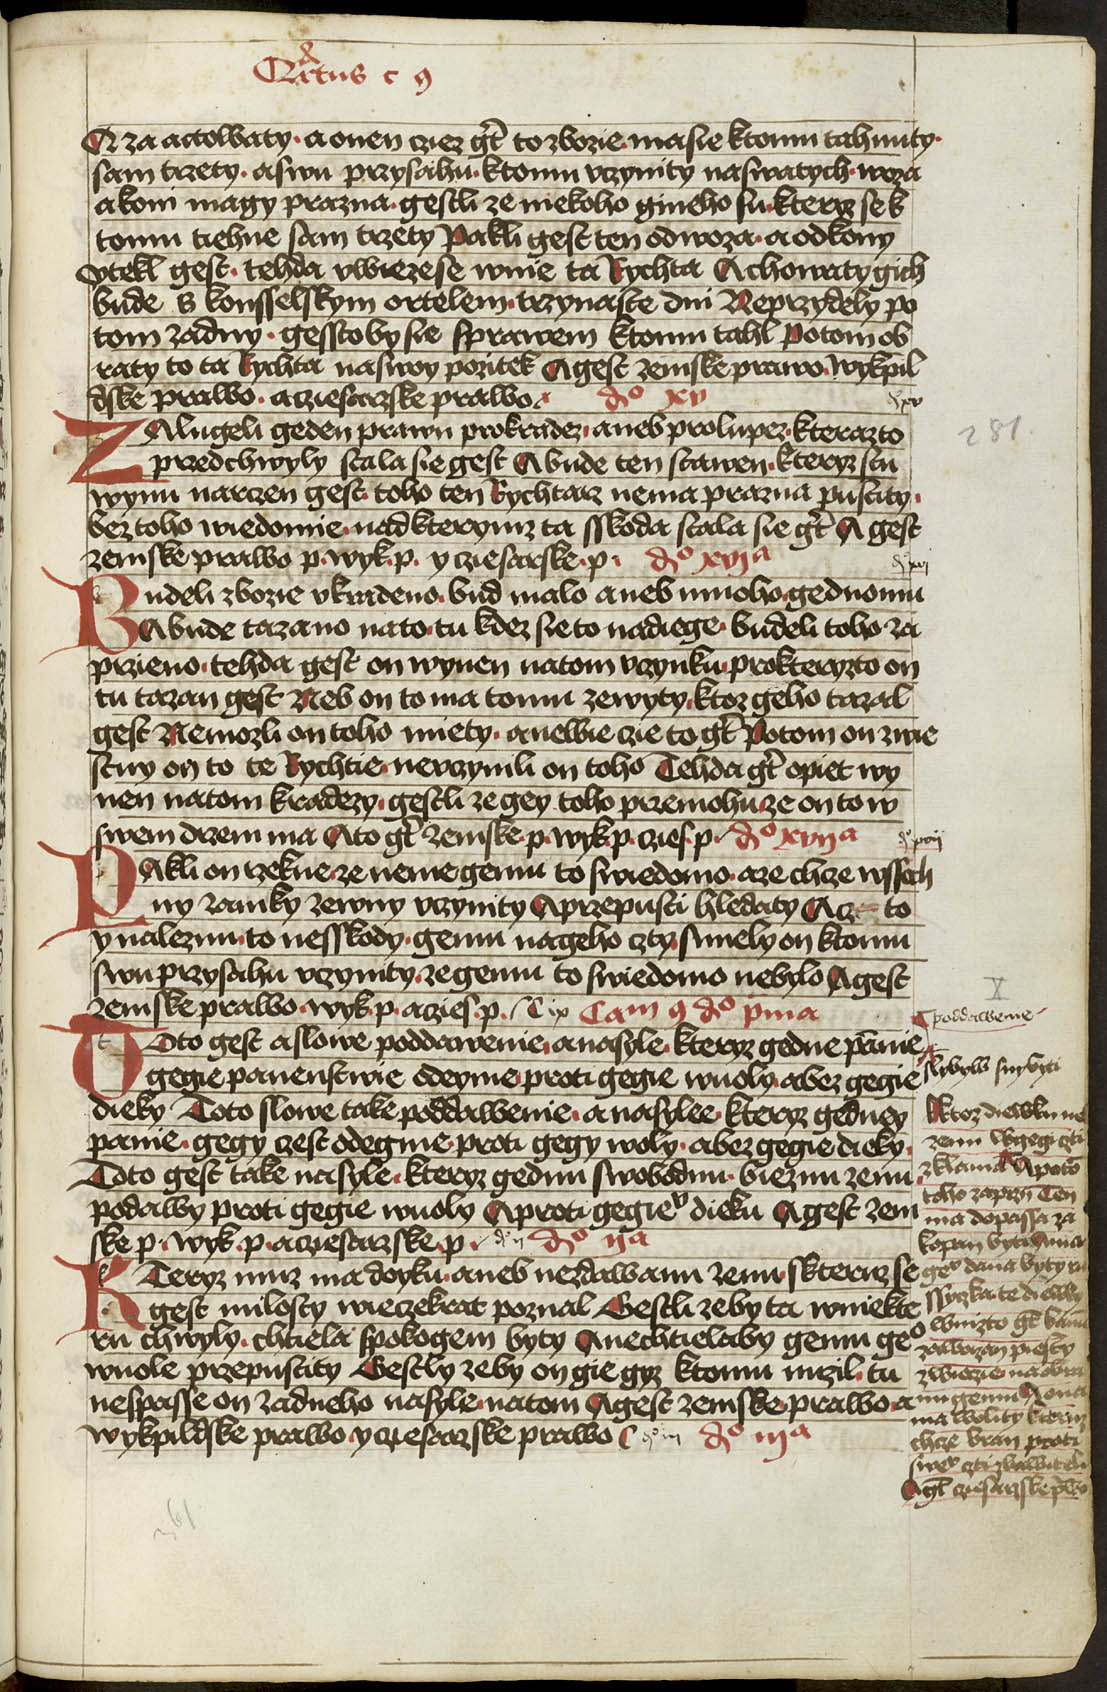 Qrtus c 9
A za actolbaty · a onen cziez gt to zbozie · ma sie ktomu tahnuty ·
sam trzety · a swu przysahu · ktomu vczynity na swatych · woza
a koni magy prazna · gestli ze niekoho gineho su · kteryz se k
tomu tiehne sam trzety Pakli gest ten od woza · a od kony
vtekl gest · tehda vwiezese wnie ta Rychta A chowaty gich
bude s konsselskym ortelem · trzynaste dni Neprzydely po
tom zadny · gessto by sie sprawem ktomu tahl Potom ob
raty to ta Rychta na swoy pozitek A gest zemske prawo · wykpil
dske prawo · a cziesarzske prawo · do xv
ZAlugeli geden prawu pro kradez · aneb pro lupez · kterazto
przed chwyly stala sie gest A bude ten stawen · kteryz stu
wynu narczen gest · toho ten Rychtarz nema prazna pustity ·
bez toho wiedomie · nad kterymz ta sskoda stala sie gt A gest
zemske prawo p · wyk · p · y cziesarske · p · do xvj a
BUdeli zbozie vkradeno · bud malo aneb mnoho · gednomu
A bude tazano na to · tu kdez sie to nadiege · budeli toho za
przieno · tehda gest on wynen na tom vczynku · pro kteryzto on
tu tazan gest Neb on to ma tomu zewyty · ktoz geho tazal
gest Nemozli on toho miety · a newie czie to gt Potom on zwie
stuy on to te Rychtie · nevczynili on toho Tehda gt opiet wy
nen na tom kradezy · gestli ze gey toho przemohu · ze on to w
swem drzem ma A to gt zemske · p · wyk · p · czies · p · do xvij a
PAkli on rzekne · ze nenie gemu to swiedomo · a ze chce wssech
ny zamky zewny vczynity A przepusti hledaty Acz to
y naleznu · to nesskody · gemu na geho czty · smiely on ktomu
swu przysahu vczynity · ze gemu to swiedomo nebylo A gest
zemske prawo · wyk · p · a czies · p · C ix Cam 9 do pma
TOto gest a slowe poddawenie · a nasyle · kteryz gedne panie
gegie panenstwie odeyme · proti gegie wuoly · a bez gegie
dieky Toto slowe take poddawenie · a nasylee · kteryz gedney
panie · gegy czest odegme · proti gegy woly · a bez gegie dieky ·
Toto gest take nasyle · kteryz gednu swobodnu · bieznu zenu ·
podawy proti gegie wuoly A proti gegie dieku A gest zem
ske p · wyk · p · a cziesarzske · p · do ij do ij a
KTeryz muz ma doyku · aneb nezdawanu zenu · skteruz se
gest milosty wiczekrat poznal Gestli zeby ta wniekte
ru chwyly · chtiela spokogem byty A nechtielaby gemu geo
wuole przepustity Gestly zeby on gie gyz ktomu nuzil · tu
nespasse on zadneho nasyle · na tom A gest zemske prawo · a
wykpildske prawo y cziesarzske prawo C do iij do iij a
xv
281
do xvj
do xvij
X
poddawenie
slybyw sny byti
Ktoz diewku ne
zenu w gegi czti
zklama A poto
toho zaprzy Ten
ma dopassa za
kopan byti A ma
geo dana byty ru
ssyczka te diewky